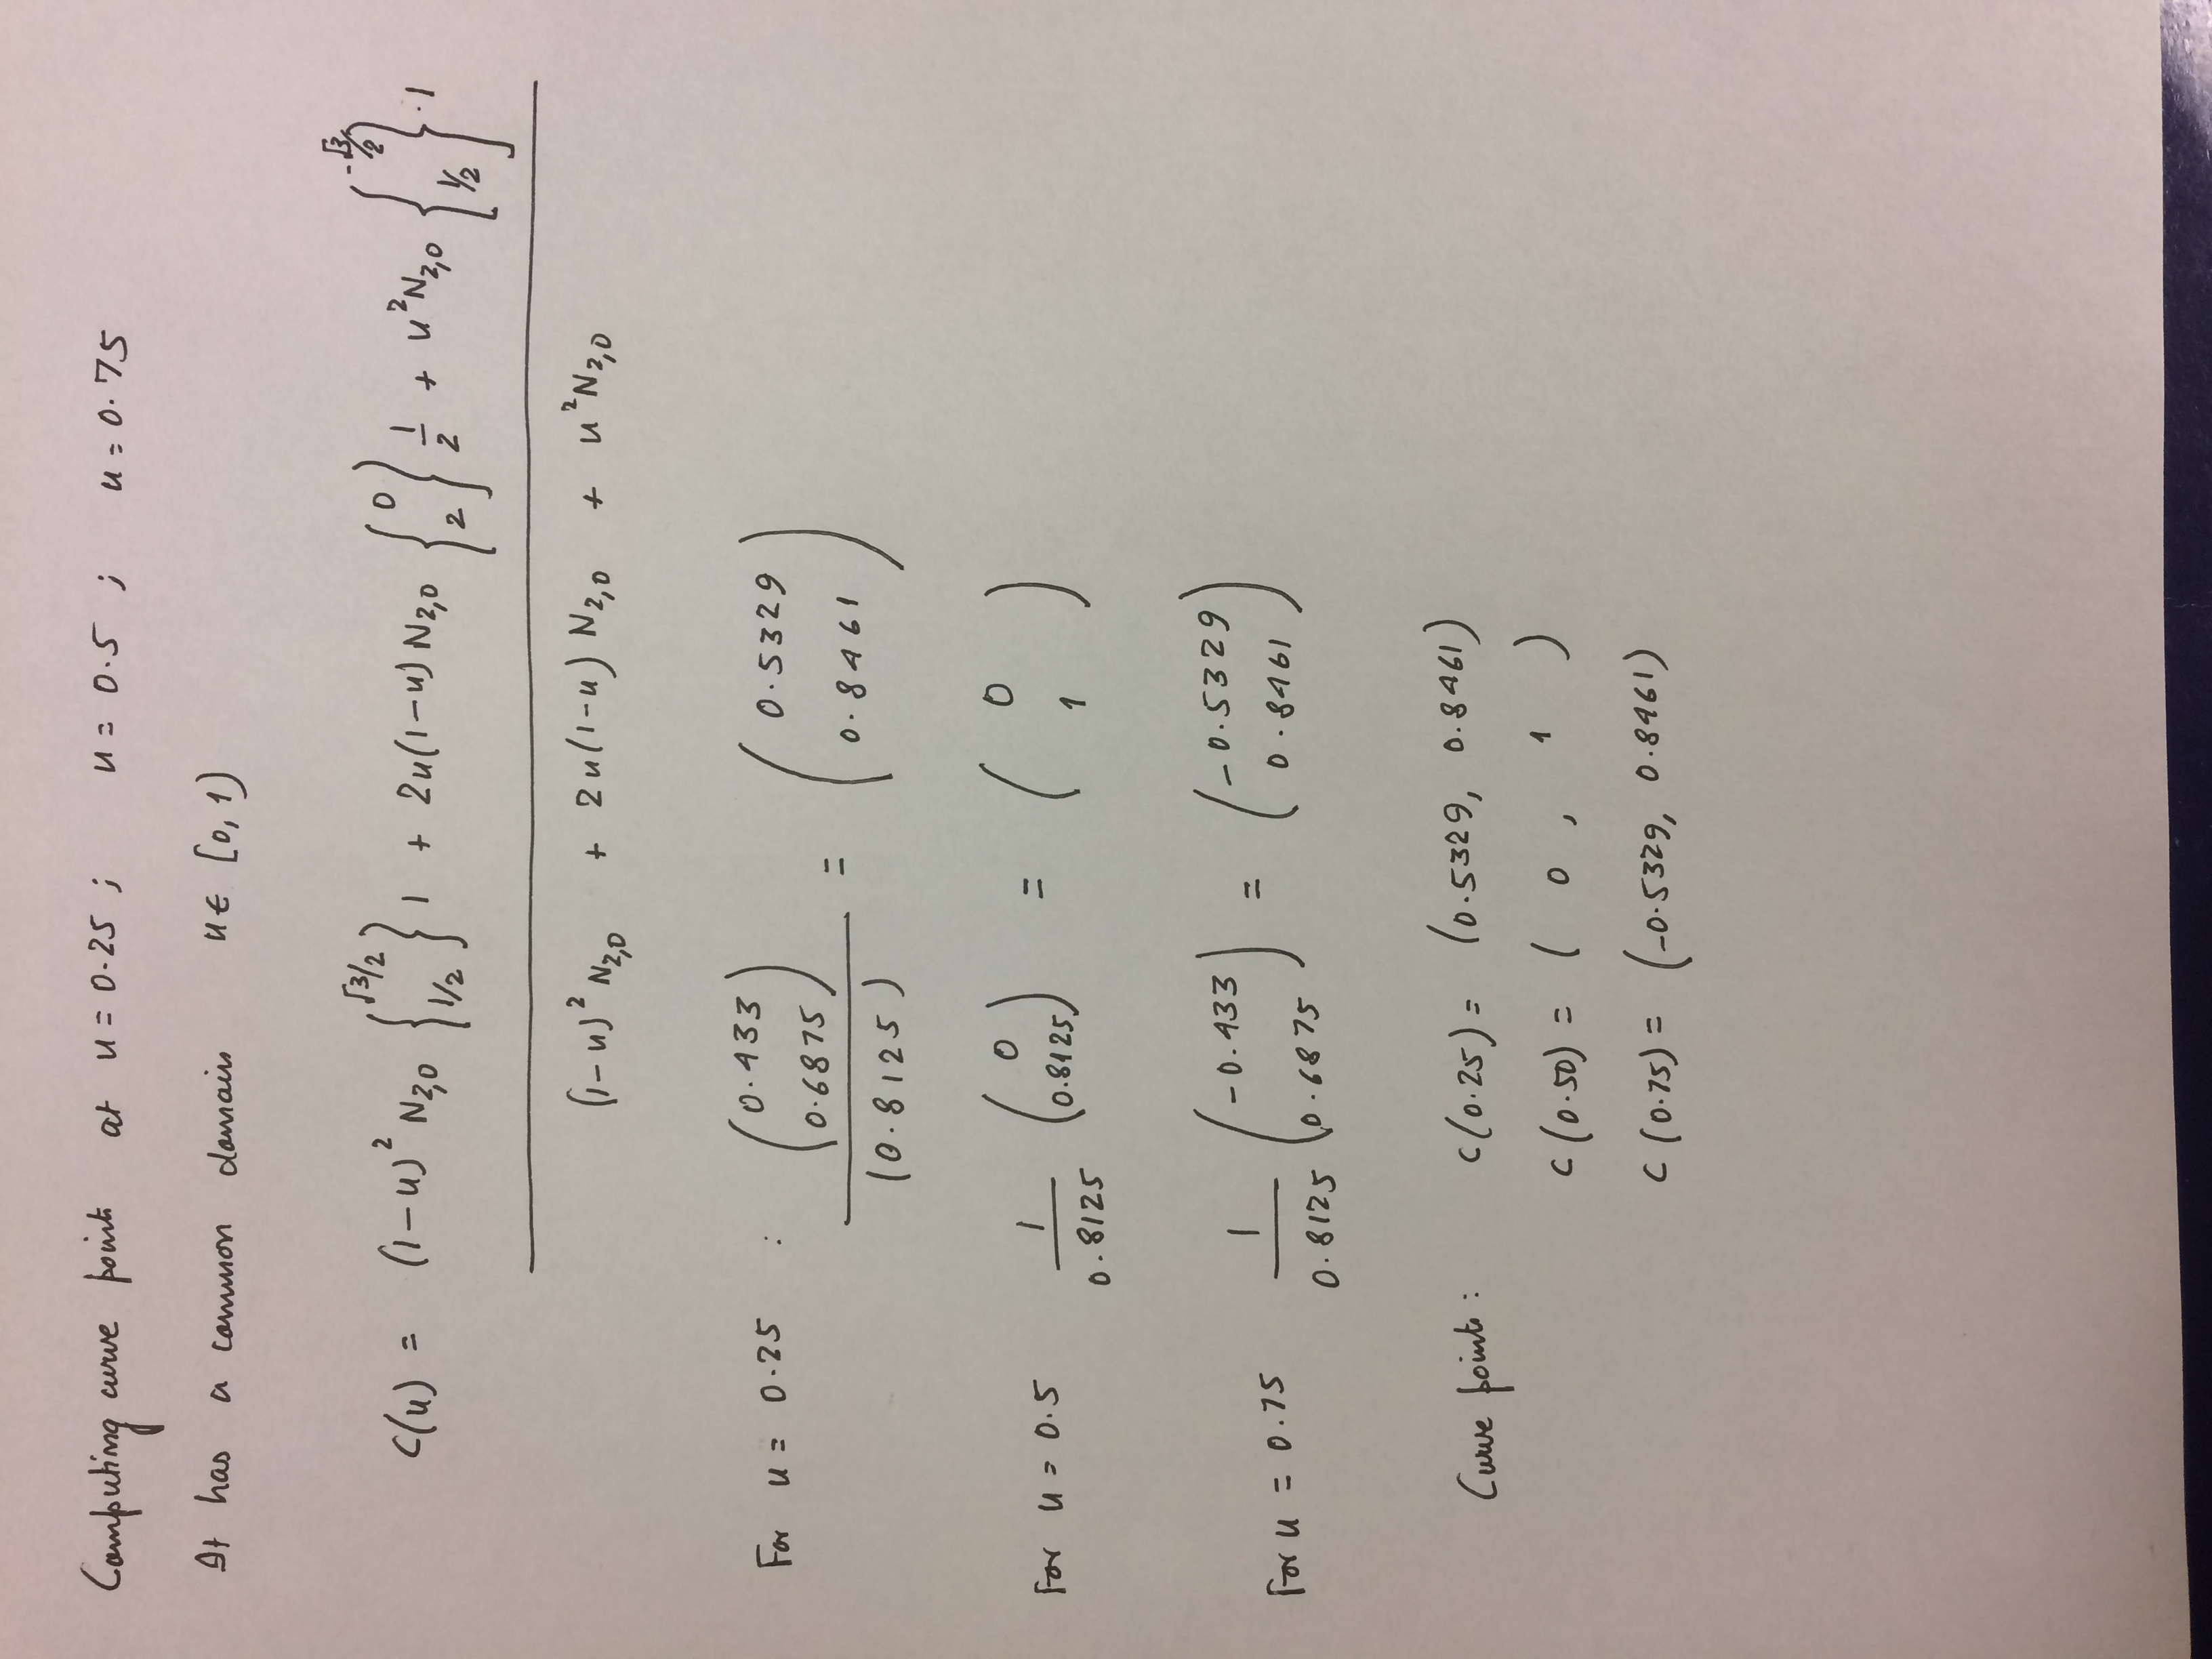 Computing curve points at u = 0.25 ; u = 0.5 ; u = 0.75
It has a common domain u ∈ [0, 1)
C(u) = (1-u)² N₂,₀ {√3/2 1/2} 1 + 2u(1-u) N₂,₀ {0 2} 1/2 + u² N₂,₀ {-√3/2 1/2} · 1
(1-u)² N₂,₀ + 2u(1-u) N₂,₀ + u² N₂,₀
For u = 0.25 : (0.433 0.6875) / (0.8125) = (0.5329 0.8461)
For u = 0.5 1/0.8125 (0 0.8125) = (0 1)
For u = 0.75 1/0.8125 (-0.433 0.6875) = (-0.5329 0.8461)
Curve points : C(0.25) = (0.5329, 0.8461)
C(0.50) = ( 0 , 1 )
C(0.75) = (-0.5329, 0.8461)